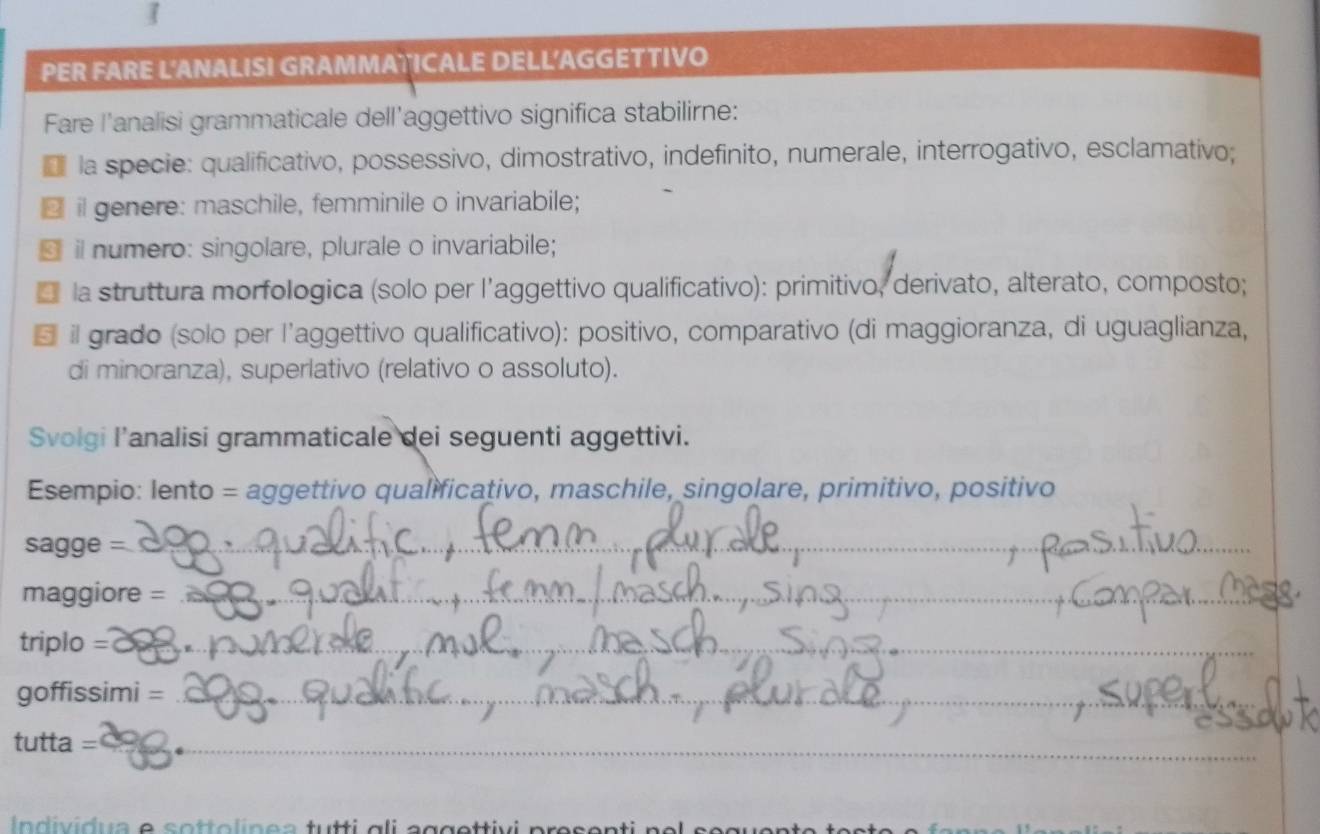 PER FARE L'ANALISI GRAMMATICALE DELL'AGGETTIVO
Fare l'analisi grammaticale dell'aggettivo significa stabilirne:
1 la specie: qualificativo, possessivo, dimostrativo, indefinito, numerale, interrogativo, esclamativo;
2 il genere: maschile, femminile o invariabile;
3 il numero: singolare, plurale o invariabile;
4 la struttura morfologica (solo per l'aggettivo qualificativo): primitivo, derivato, alterato, composto;
5 il grado (solo per l'aggettivo qualificativo): positivo, comparativo (di maggioranza, di uguaglianza,
di minoranza), superlativo (relativo o assoluto).
Svolgi l'analisi grammaticale dei seguenti aggettivi.
Esempio: lento = aggettivo qualificativo, maschile, singolare, primitivo, positivo
sagge = agg. qualific., femm., plurale, , positivo
maggiore = agg. qualif., femm./masch., sing, , compar. magg.
triplo = agg. numerale, mol., masch., sing.
goffissimi = agg. qualific., masch., plurale, , superl. assoluto
tutta = agg.
Individua e sottolinea tutti gli aggettivi presenti nel seguente testo e